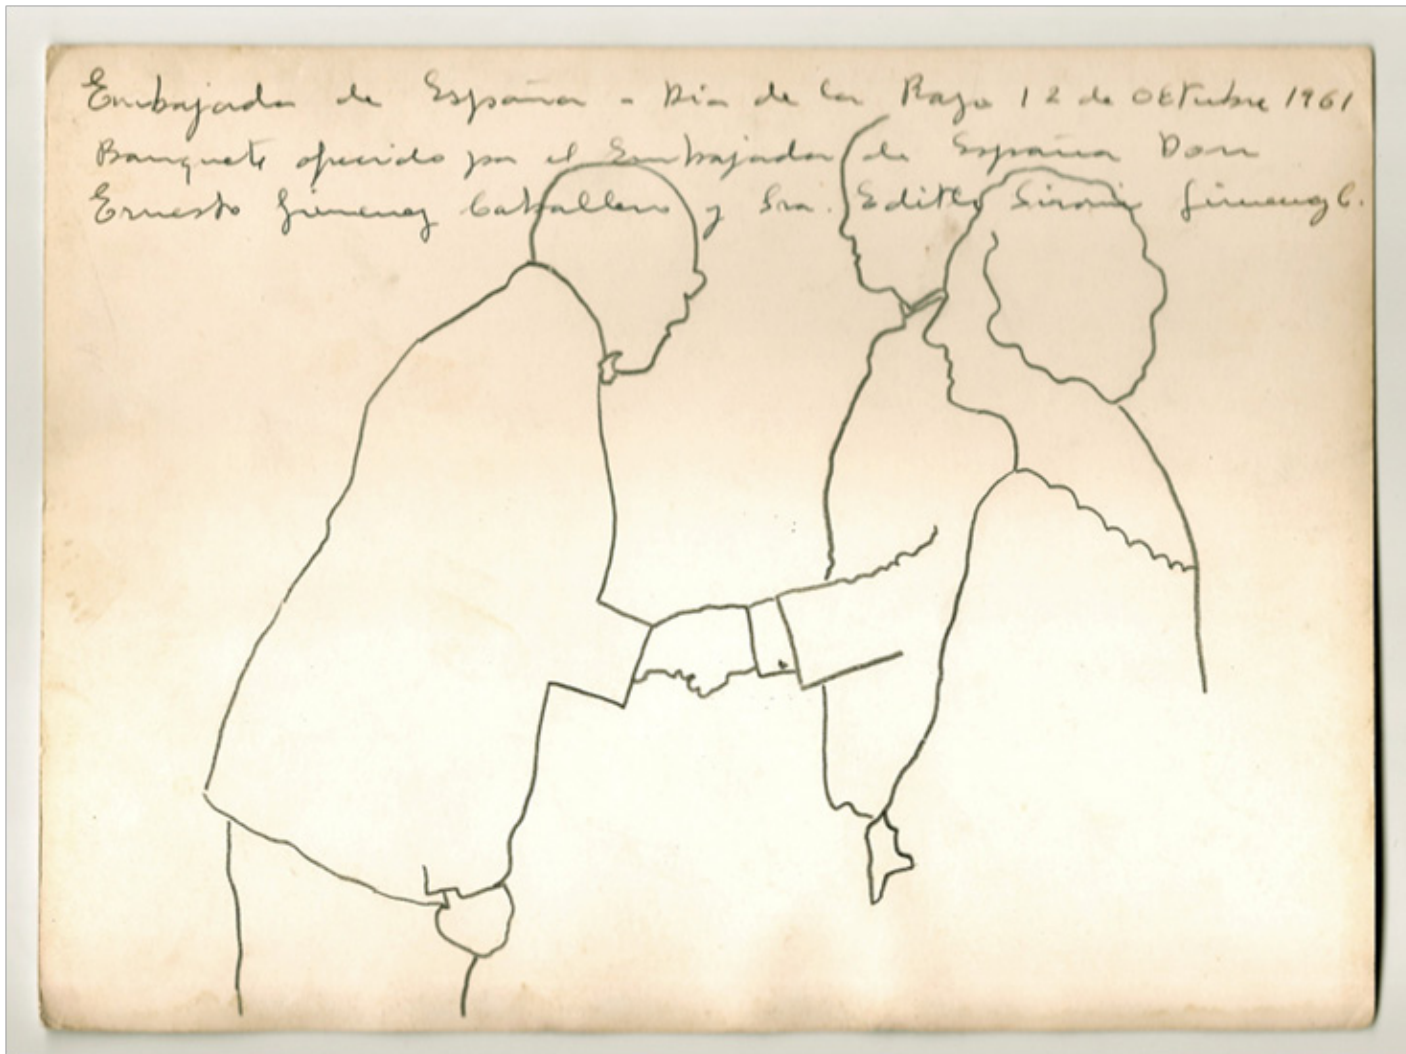 Embajada de España - Dia de la Raza 12 de Octubre 1961
Banquete ofrecido por el Embajador de España Don
Ernesto Gimenez Caballero y Sra. Edith Sironi Gimenez C.